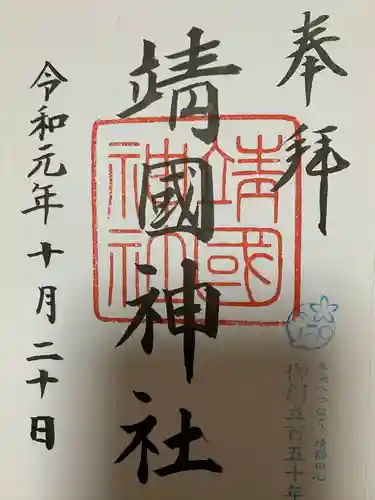 奉拝
靖國神社
靖國
神社
令和元年十月二十日
150
御創立百五十年